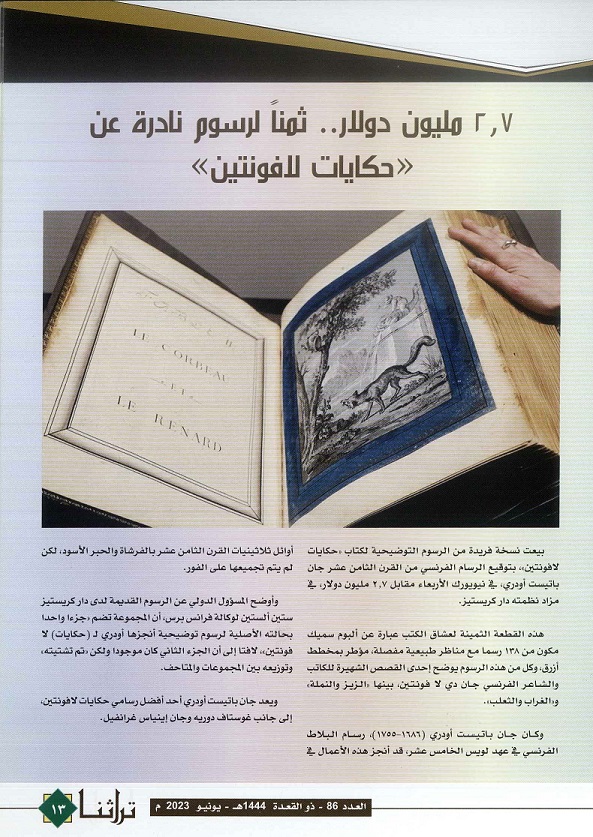 ٢,٧ مليون دولار.. ثمناً لرسوم نادرة عن
«حكايات لافونتين»
LE CORBEAU
ET
LE RENARD
بيعت نسخة فريدة من الرسوم التوضيحية لكتاب «حكايات
لافونتين»، بتوقيع الرسام الفرنسي من القرن الثامن عشر جان
باتيست أودري، في نيويورك الأربعاء مقابل ٢,٧ مليون دولار، في
مزاد نظمته دار كريستيز.
هذه القطعة الثمينة لعشاق الكتب عبارة عن ألبوم سميك
مكون من ١٣٨ رسما مع مناظر طبيعية مفصلة، مؤطر بمخطط
أزرق، وكل من هذه الرسوم يوضح إحدى القصص الشهيرة للكاتب
والشاعر الفرنسي جان دي لا فونتين، بينها «الزيز والنملة»،
و«الغراب والثعلب».
وكان جان باتيست أودري (١٦٨٦-١٧٥٥)، رسام البلاط
الفرنسي في عهد لويس الخامس عشر، قد أنجز هذه الأعمال في
أوائل ثلاثينيات القرن الثامن عشر بالفرشاة والحبر الأسود، لكن
لم يتم تجميعها على الفور.
وأوضح المسؤول الدولي عن الرسوم القديمة لدى دار كريستيز
ستين ألستين لوكالة فرانس برس، أن المجموعة تضم «جزءا واحدا
بحالته الأصلية لرسوم توضيحية أنجزها أودري لـ (حكايات) لا
فونتين»، لافتا إلى أن الجزء الثاني كان موجودا ولكن «تم تشتيته،
وتوزيعه بين المجموعات والمتاحف.
ويعد جان باتيست أودري أحد أفضل رسامي حكايات لافونتين،
إلى جانب غوستاف دوريه وجان إينياس غرانفيل.
العدد 86 - ذو القعدة 1444هـ - يونيو 2023 م
تراثنا
١٣